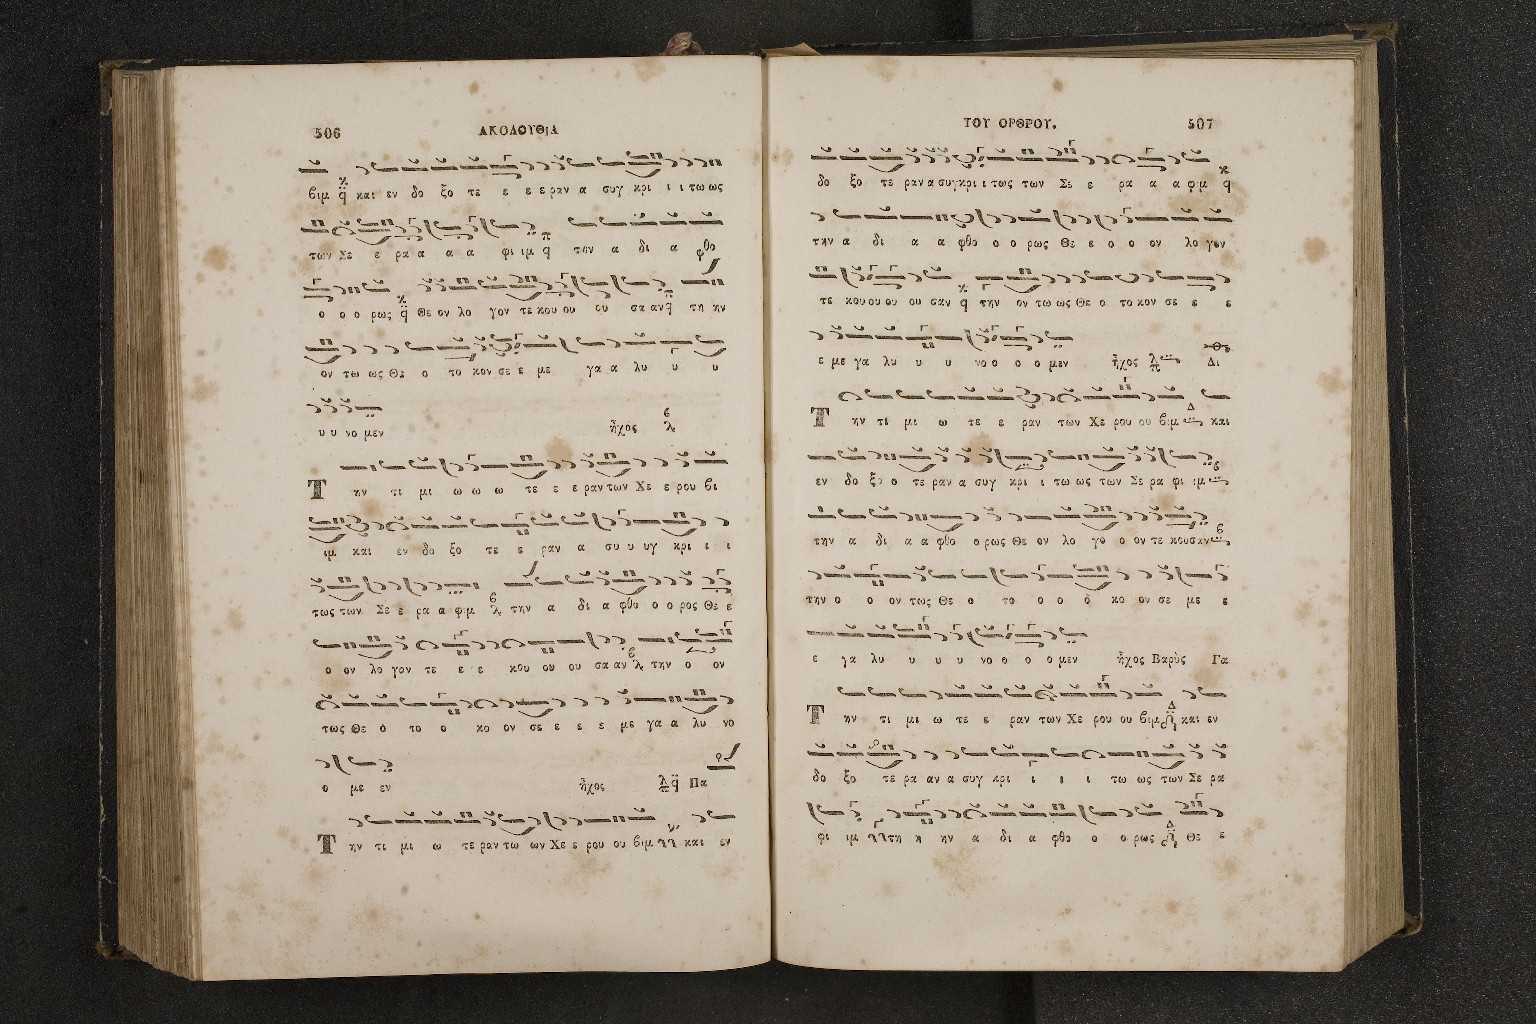 506
ΑΚΟΛΟΥΘΙΑ
βιμ και εν δο ξο τε ε ε ε ραν α συγ κρι ι ι τω ως
των Σε ε ρα α α α φι ιμ την α δι α φθο
ο ο ο ρως Θε ον λο γον τε κου ου ου σα αν τη ην
ον τω ως Θε ο το κον σε ε με γα α λυ υ υ
υ υ νο μεν ἦχος
Τ ην τι μι ω ω ω τε ε ε ραν των Χε ε ρου βι
ιμ και εν δο ξο τε ε ραν α συ υ υγ κρι ι ι
τως των Σε ε ρα α φιμ την α δι α φθο ο ο ρος Θε ε
ο ον λο γον τε ε ε κου ου ου σα αν την ο ον
τως Θε ο το ο κο ον σε ε ε ε με γα α λυ νο
ο με εν ἦχος Πα
Τ ην τι μι ω τε ραν τω ων Χε ε ρου ου βιμ και εν
ΤΟΥ ΟΡΘΡΟΥ.
507
δο ξο τε ραν α συγκρι ι τως των Σε ε ρα α α φιμ
την α δι α α φθο ο ο ρως Θε ε ο ο ον λο γον
τε κου ου ου ου σαν την ον τω ως Θε ο το κον σε ε ε
ε με γα λυ υ υ νο ο ο ο μεν ἦχος Δι
Τ ην τι μι ω τε ε ραν των Χε ρου ου βιμ και
εν δο ξο ο τε ραν α συγ κρι ι τω ως των Σε ρα φι ιμ
την α δι α α φθο ο ρως Θε ον λο γο ο ον τε κουσαν
την ο ο ον τως Θε ο το ο ο ο κο ον σε με ε
ε γα λυ υ υ υ νο ο ο ο μεν ἦχος Βαρὺς Γα
Τ ην τι μι ω τε ε ραν των Χε ρου ου βιμ και εν
δο ξο τε ρα αν α συγ κρι ι ι ι τω ως των Σε ρα
φι ιμ τη η ην α δι α φθο ο ο ρως Θε ε